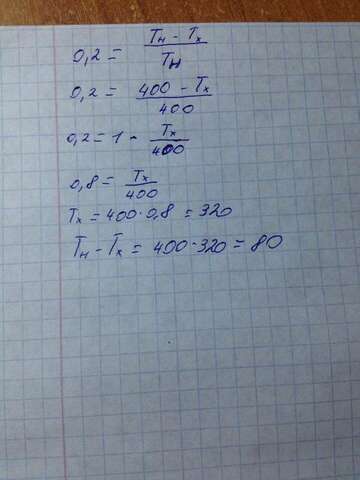 0,2 = (Tн - Tх)/Tн
0,2 = (400 - Tх)/400
0,2 = 1 - Tх/400
0,8 = Tх/400
Tх = 400·0,8 = 320
Tн - Tх = 400-320 = 80